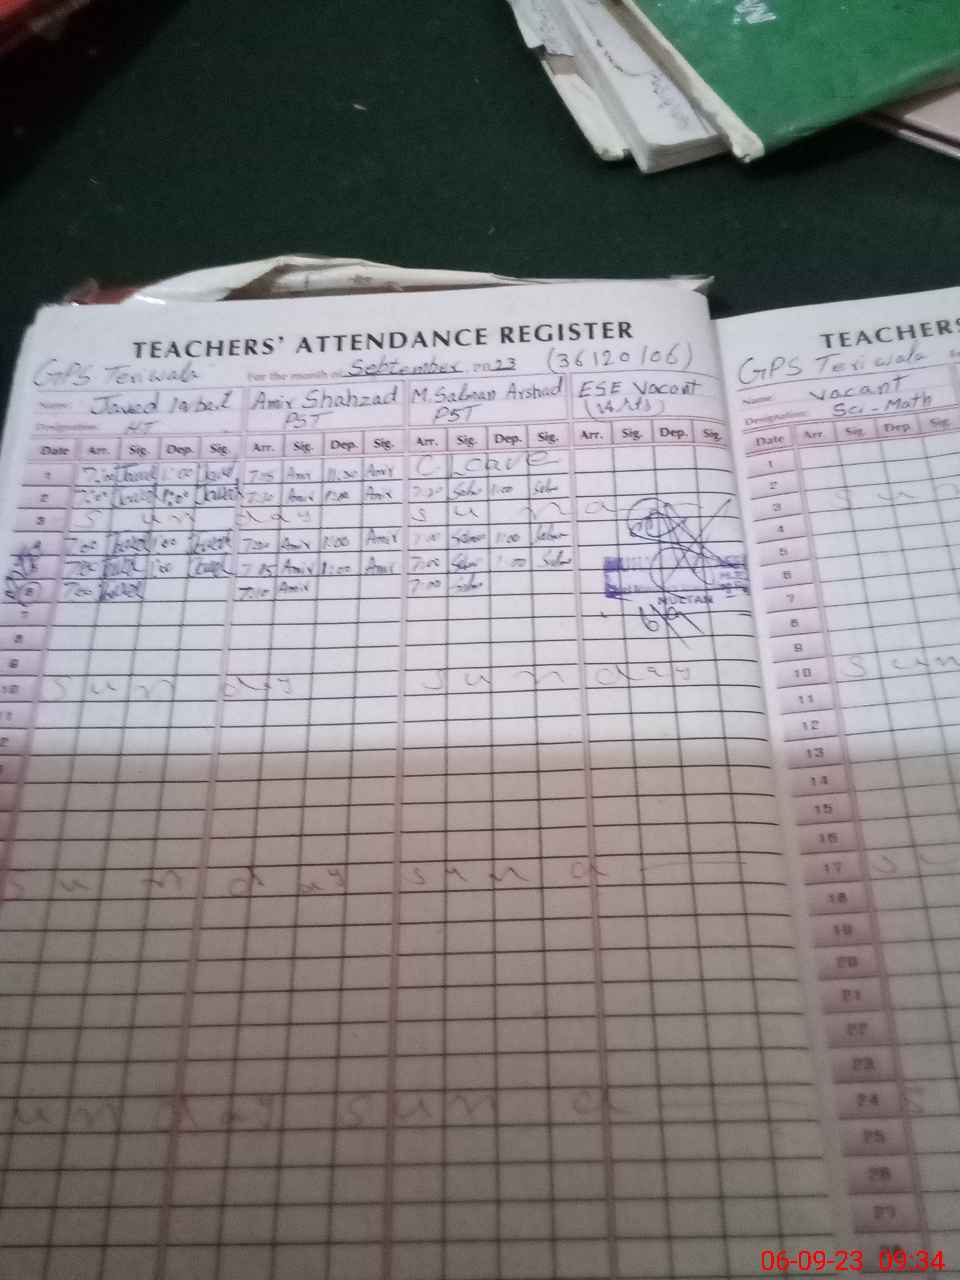 TEACHERS' ATTENDANCE REGISTER
GPS Teriwala For the month of September 2023 (36120106)
Name: Javed Iqbal Amir Shahzad M. Salman Arshad ESE Vacant
Designation: HT PST PST (Arts)
Date Arr. Sig. Dep. Sig. Arr. Sig. Dep. Sig. Arr. Sig. Dep. Sig. Arr. Sig. Dep. Sig.
1 7:00 Javed 1:00 Javed 7:05 Amir 11:30 Amir C. Leave
2 7:00 Javed 1:00 Javed 7:10 Amir Amir 7:20 1:00
3 S u n day S u n d a
7:00 Javed 1:00 Javed 7:00 Amir 1:00 Amir 7:00 1:00
7:00 Javed 1:00 Javed 7:05 Amir 1:00 Amir 7:00 1:00
6 7:00 Javed 7:10 Amir 7:00
MULTAN
6/9
7
8
9
10 S u n day S u n day
11
12
S u n d ay S u n d
u n day S u n d
TEACHERS
GPS Teriwala
Name: Vacant
Designation: Sci-Math
Date Arr Sig. Dep. Sig.
1
2
3 S u n
4
5
6
7
8
9
10 S u n
11
12
13
14
15
16
17 S u
18
19
20
21
22
23
24 S
25
26
27
M
06-09-23 09:34